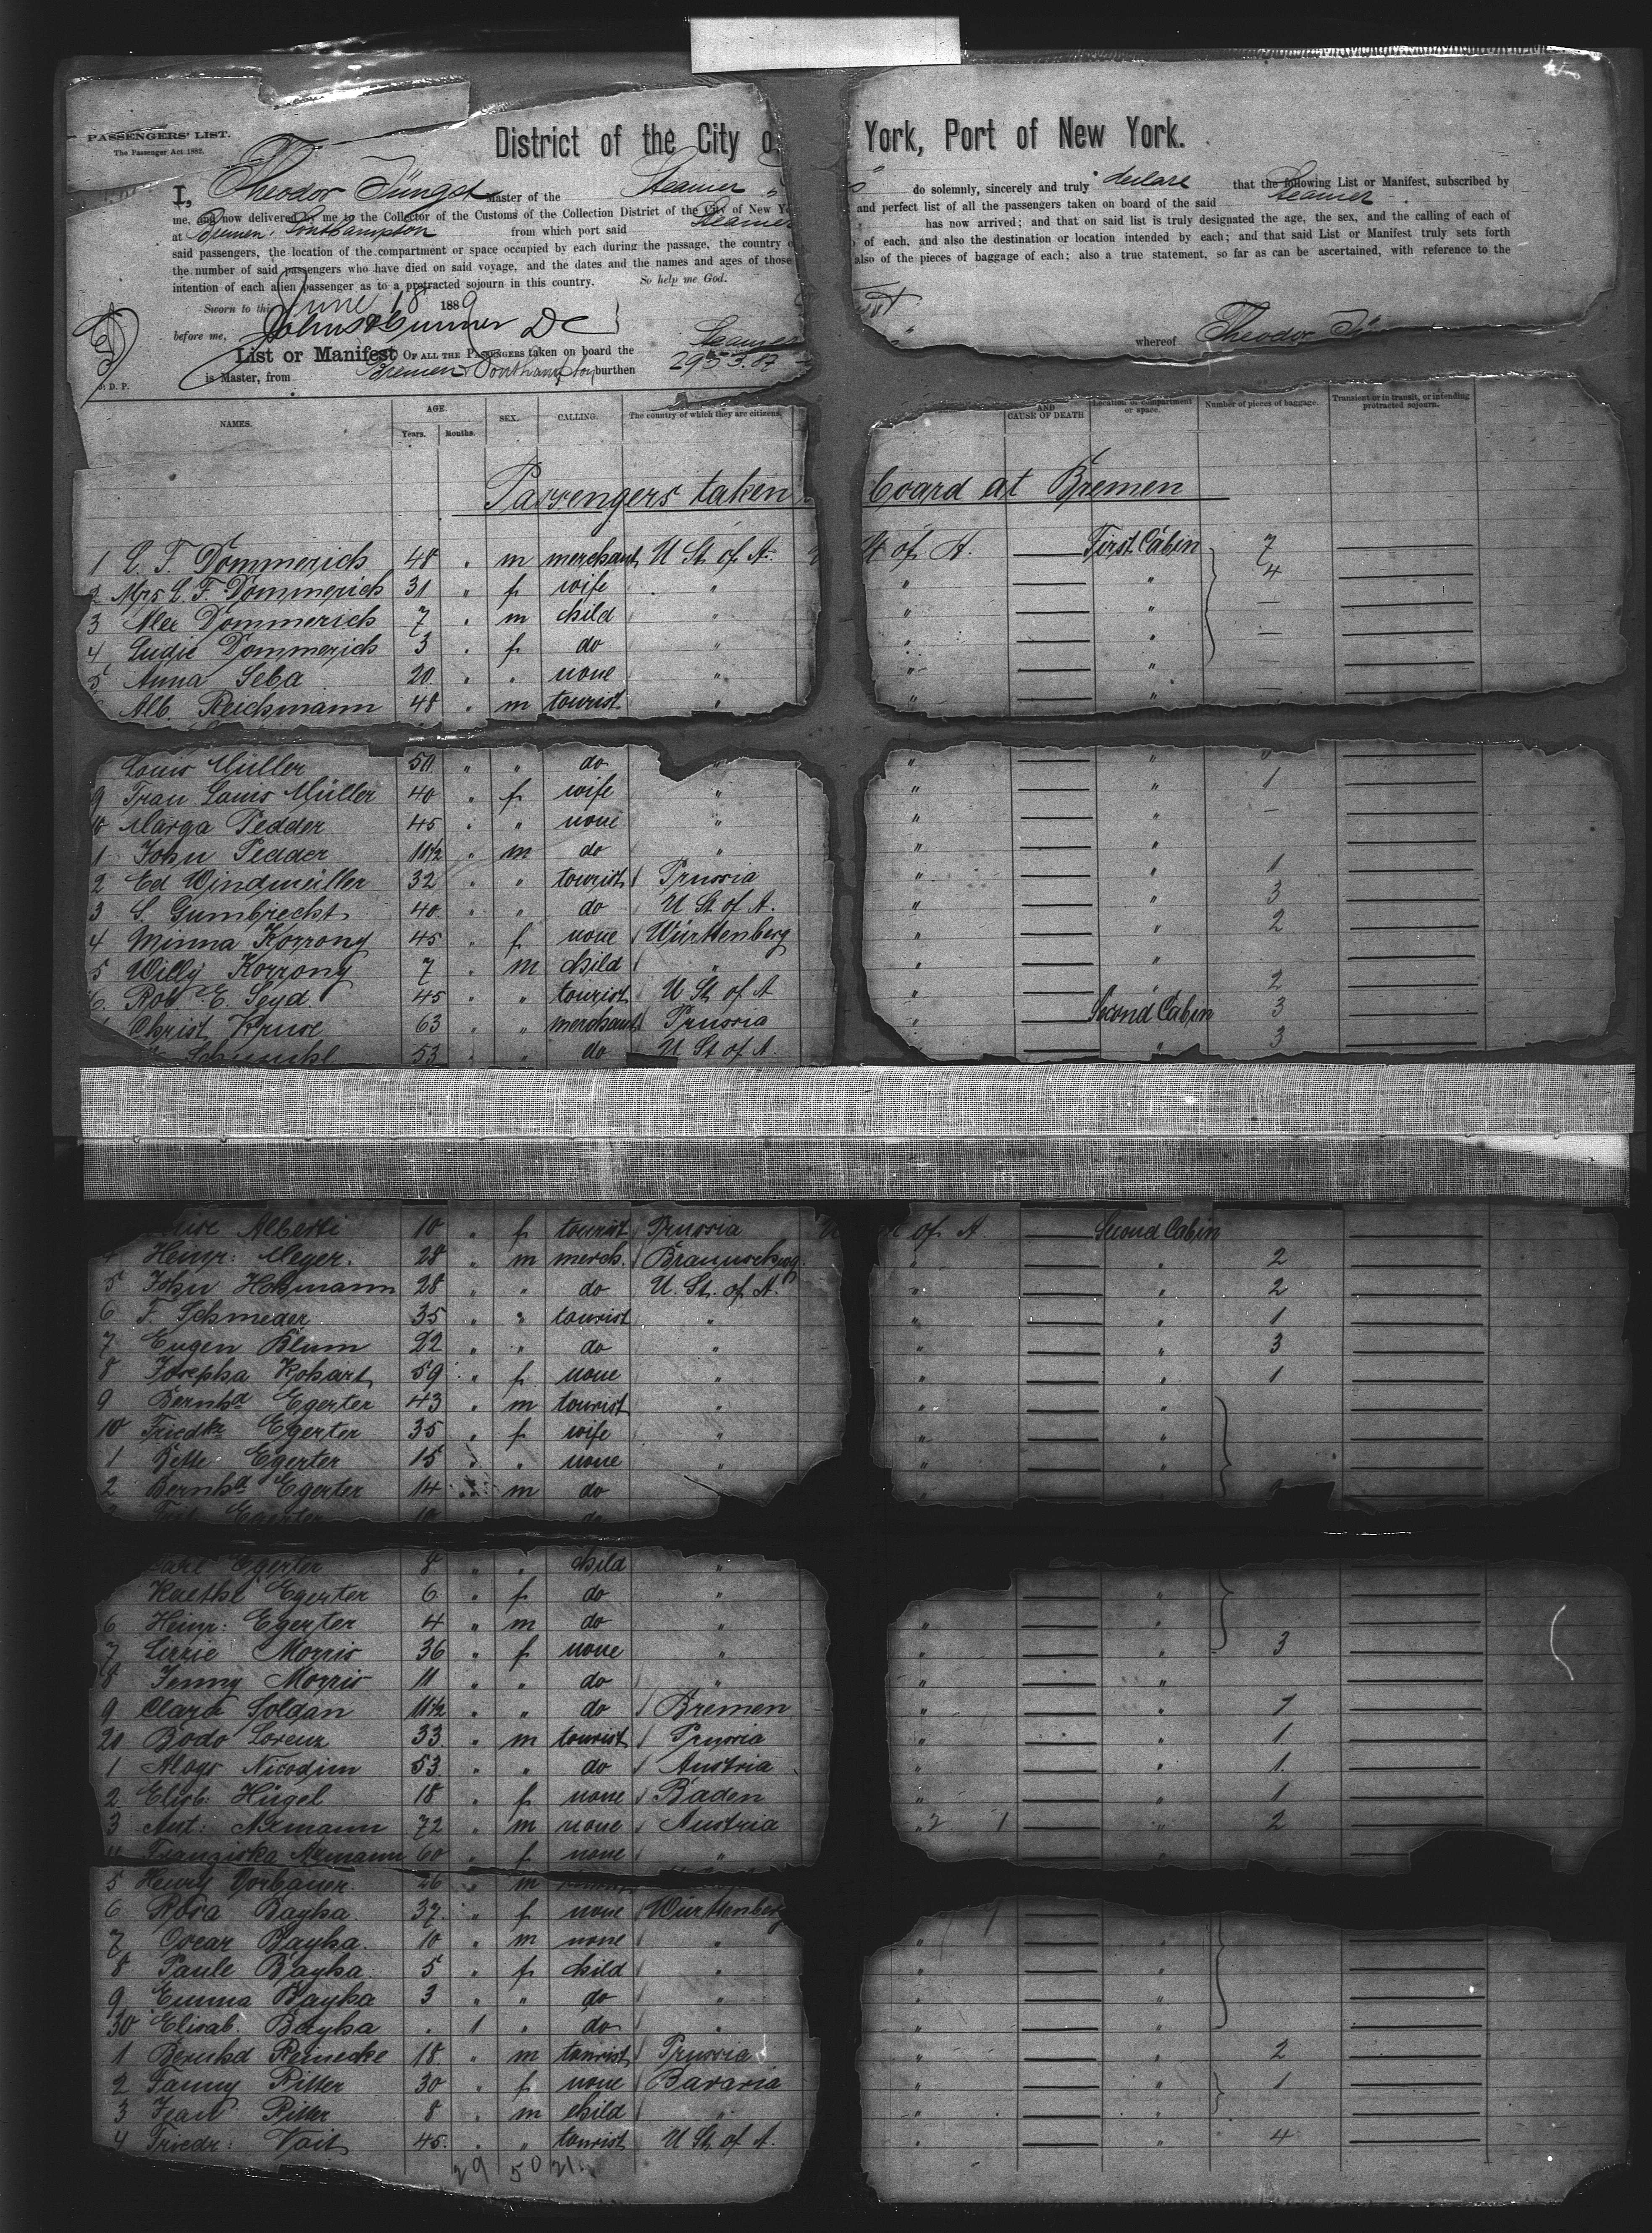 PASSENGERS' LIST.
The Passenger Act 1882.
District of the City o York, Port of New York.
I, Theodor Jüngst Master of the Steamer " do solemnly, sincerely and truly declare that the following List or Manifest, subscribed by
me, and now delivered by me to the Collector of the Customs of the Collection District of the City of New Yo and perfect list of all the passengers taken on board of the said Steamer
at Bremen. Southampton from which port said Steamer has now arrived; and that on said list is truly designated the age, the sex, and the calling of each of
said passengers, the location of the compartment or space occupied by each during the passage, the country o of each, and also the destination or location intended by each; and that said List or Manifest truly sets forth
the number of said passengers who have died on said voyage, and the dates and the names and ages of those also of the pieces of baggage of each; also a true statement, so far as can be ascertained, with reference to the
intention of each alien passenger as to a protracted sojourn in this country. So help me God.
Sworn to this June 18 1889
before me, DC whereof Theodor
List or Manifest OF ALL THE PASSENGERS taken on board the Steamer
is Master, from Bremen Southampton burthen 2953.87
J. D. P.
NAMES. AGE. Years. Months. SEX. CALLING. The country of which they are citizens. AND CAUSE OF DEATH Location of compartment or space. Number of pieces of baggage. Transient or in transit, or intending protracted sojourn.
Passengers taken board at Bremen
1 L. F. Dommerich 48 " m merchant U St of A. St of A. First Cabin 7
2 Mrs L. F. Dommerich 31 " f wife " " " 4
3 Alex Dommerich 7 " m child " " "
4 Ludie Dommerich 3 " f do " " "
5 Anna Seba 20 " " none " " "
Alb. Reichmann 48 " m tourist " " "
Louis Müller 50 " " do " " "
9 Frau Louis Müller 40 " f wife " " " 1
10 Marga Pedder 45 " " none " " "
1 John Pedder 11 1/2 " m do " " "
2 Ed Windmüller 32 " " tourist Prussia " " 1
3 S. Gumbrecht 40 " " do U St of A. " " 3
4 Minna Korrony 45 " f none Würtenberg " " 2
5 Willy Korrony 7 " m child " " "
6 Rob E. Seyd 45 " " tourist U St of A " " 2
Christ. Kruse 63 " " merchant Prussia " Second Cabin 3
53 " " do U St of A. " " 3
Alberti 10 " f tourist Prussia of A. Second Cabin
4 Heinr: Meyer. 28 " m merch. Braunschwg. " " 2
5 John Hohmann 28 " " do U. St. of A. " " 2
6 F. Schmeder 35 " " tourist " " " 1
7 Eugen Blum 22 " " do " " " 3
8 Josepha Kohart 59 " f none " " " 1
9 Bernhd Egerter 43 " m tourist " " "
10 Friedke Egerter 35 " f wife " " "
1 Bette Egerter 15 " " none " " "
2 Bernhd Egerter 14 " m do "
Egerter 10 do
Carl Egerter 8 " " child "
Kaethe Egerter 6 " f do " "
6 Heinr: Egerter 4 " m do " " "
7 Lizzie Morris 36 " f none " " " 3
8 Jenny Morris 11 " " do " " "
9 Clara Soldan 11 1/2 " " do Bremen " " 1
20 Bodo Lorenz 33 " m tourist Prussia " " 1
1 Aloys Nicodim 53 " " do Austria " " 1
2 Elisb: Hügel 18 " f none Baden " " 1
3 Ant: Axmann 72 " m none Austria " " 2
4 Franziska Axmann 60 " f none " "
5 Henry Vorbauer. 26 " m
6 Rosa Bayha. 37 " f none Würtenberg " "
7 Oscar Bayha. 10 " m none " " "
8 Paule Bayha. 5 " f child " " "
9 Emma Bayha 3 " " do " " "
30 Elisab. Bayha . 1 " do " " "
1 Bernhd Reinecke 18 " m tourist Prussia " " 2
2 Fanny Ritter 30 " f none Bavaria " " 1
3 Jean Ritter 8 " m child " " "
4 Friedr: Voit 45 " " tourist U St of A. " " 4
29 50 21